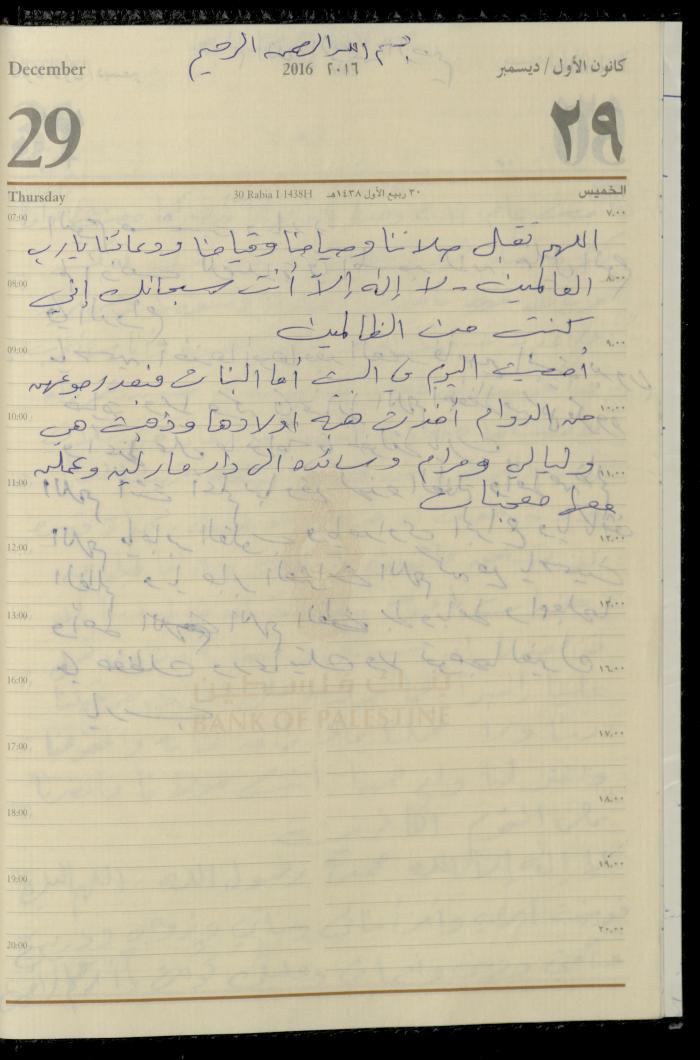 بسم الله الرحمن الرحيم
December
2016 ٢٠١٦
كانون الأول / ديسمبر
29
٢٩
Thursday
30 Rabia I 1438H ٣٠ ربيع الأول ١٤٣٨هـ
الخميس
07:00 ٧,٠٠
اللهم تقبل صلاتنا وصيامنا وقيامنا ودعائنا يا رب
08:00 ٨,٠٠
العالمين - لا إله إلا أنت سبحانك إني
كنت من الظالمين
09:00 ٩,٠٠
أمضيت اليوم في البيت أما البنات فبعد رجوعهن
10:00 ١٠,٠٠
من الدوام أخذت هبه اولادها وذهبت هي
وليالي ومرام وسائده الى دار مارلين وعملن
11:00 ١١,٠٠
معها معجنات
12:00 ١٢,٠٠
13:00 ١٣,٠٠
16:00 ١٤,٠٠
بنك فلسطين
BANK OF PALESTINE
17:00 ١٧,٠٠
18:00 ١٨,٠٠
19:00 ١٩,٠٠
20:00 ٢٠,٠٠